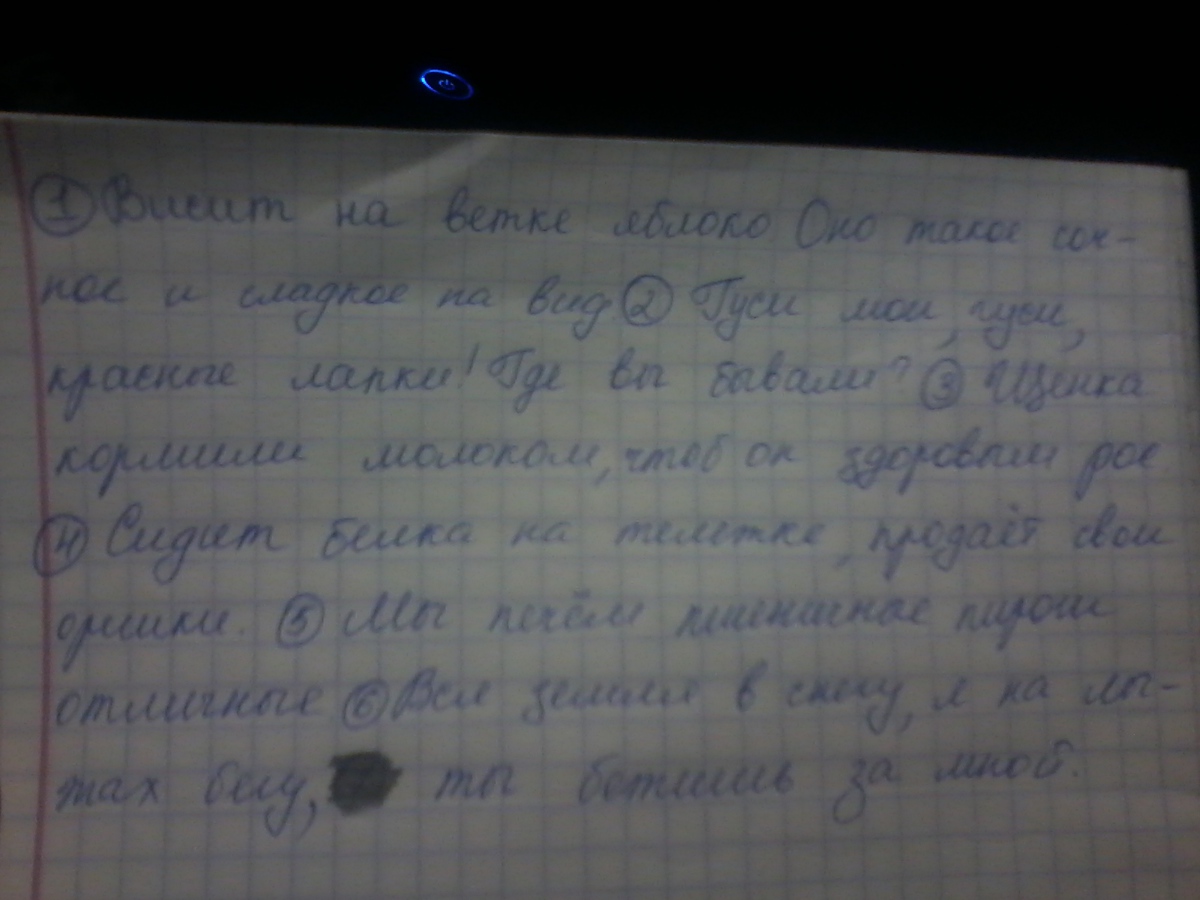 ① Висит на ветке яблоко Оно такое соч-
ное и сладкое на вид. ② Гуси мои, гуси,
красные лапки! Где вы бывали? ③ Щенка
кормили молоком, чтоб он здоровым рос
④ Сидит белка на тележке, продаёт свои
орешки. ⑤ Мы печём пшеничные пироги
отличные ⑥ Вся земля в снегу, я на лы-
жах бегу, ты бежишь за мной.